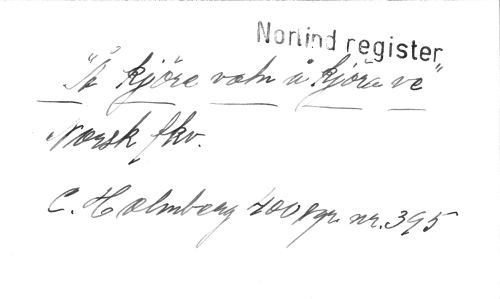 Norlind register
"Å kjöre vatn å kjöra ve"
Norsk fkv.
C. Holmberg 400 nr. 395